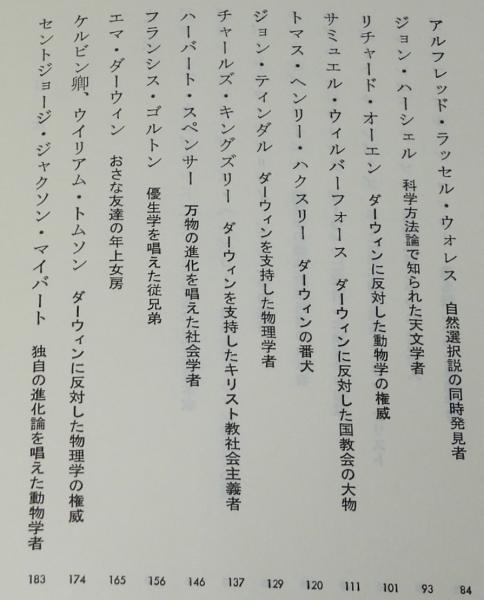 アルフレッド・ラッセル・ウォレス　自然選択説の同時発見者　84
ジョン・ハーシェル　科学方法論で知られた天文学者　93
リチャード・オーエン　ダーウィンに反対した動物学の権威　101
サミュエル・ウィルバーフォース　ダーウィンに反対した国教会の大物　111
トマス・ヘンリー・ハクスリー　ダーウィンの番犬　120
ジョン・ティンダル　ダーウィンを支持した物理学者　129
チャールズ・キングズリー　ダーウィンを支持したキリスト教社会主義者　137
ハーバート・スペンサー　万物の進化を唱えた社会学者　146
フランシス・ゴルトン　優生学を唱えた従兄弟　156
エマ・ダーウィン　おさな友達の年上女房　165
ケルビン卿、ウイリアム・トムソン　ダーウィンに反対した物理学の権威　174
セントジョージ・ジャクソン・マイバート　独自の進化論を唱えた動物学者　183